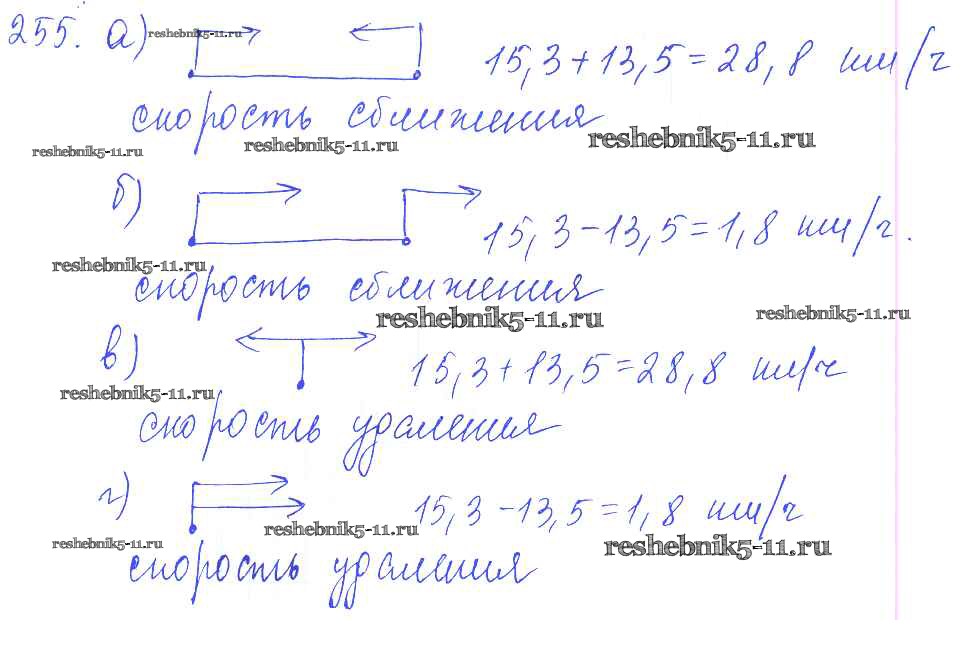 255. а) reshebnik5-11.ru
15,3+13,5=28,8 км/ч
скорость сближения
reshebnik5-11.ru reshebnik5-11.ru reshebnik5-11.ru
б)
15,3-13,5=1,8 км/ч.
reshebnik5-11.ru
скорость сближения
reshebnik5-11.ru reshebnik5-11.ru
в) 15,3+13,5=28,8 км/ч
reshebnik5-11.ru
скорость удаления
г) 15,3-13,5=1,8 км/ч
reshebnik5-11.ru
reshebnik5-11.ru reshebnik5-11.ru
скорость удаления